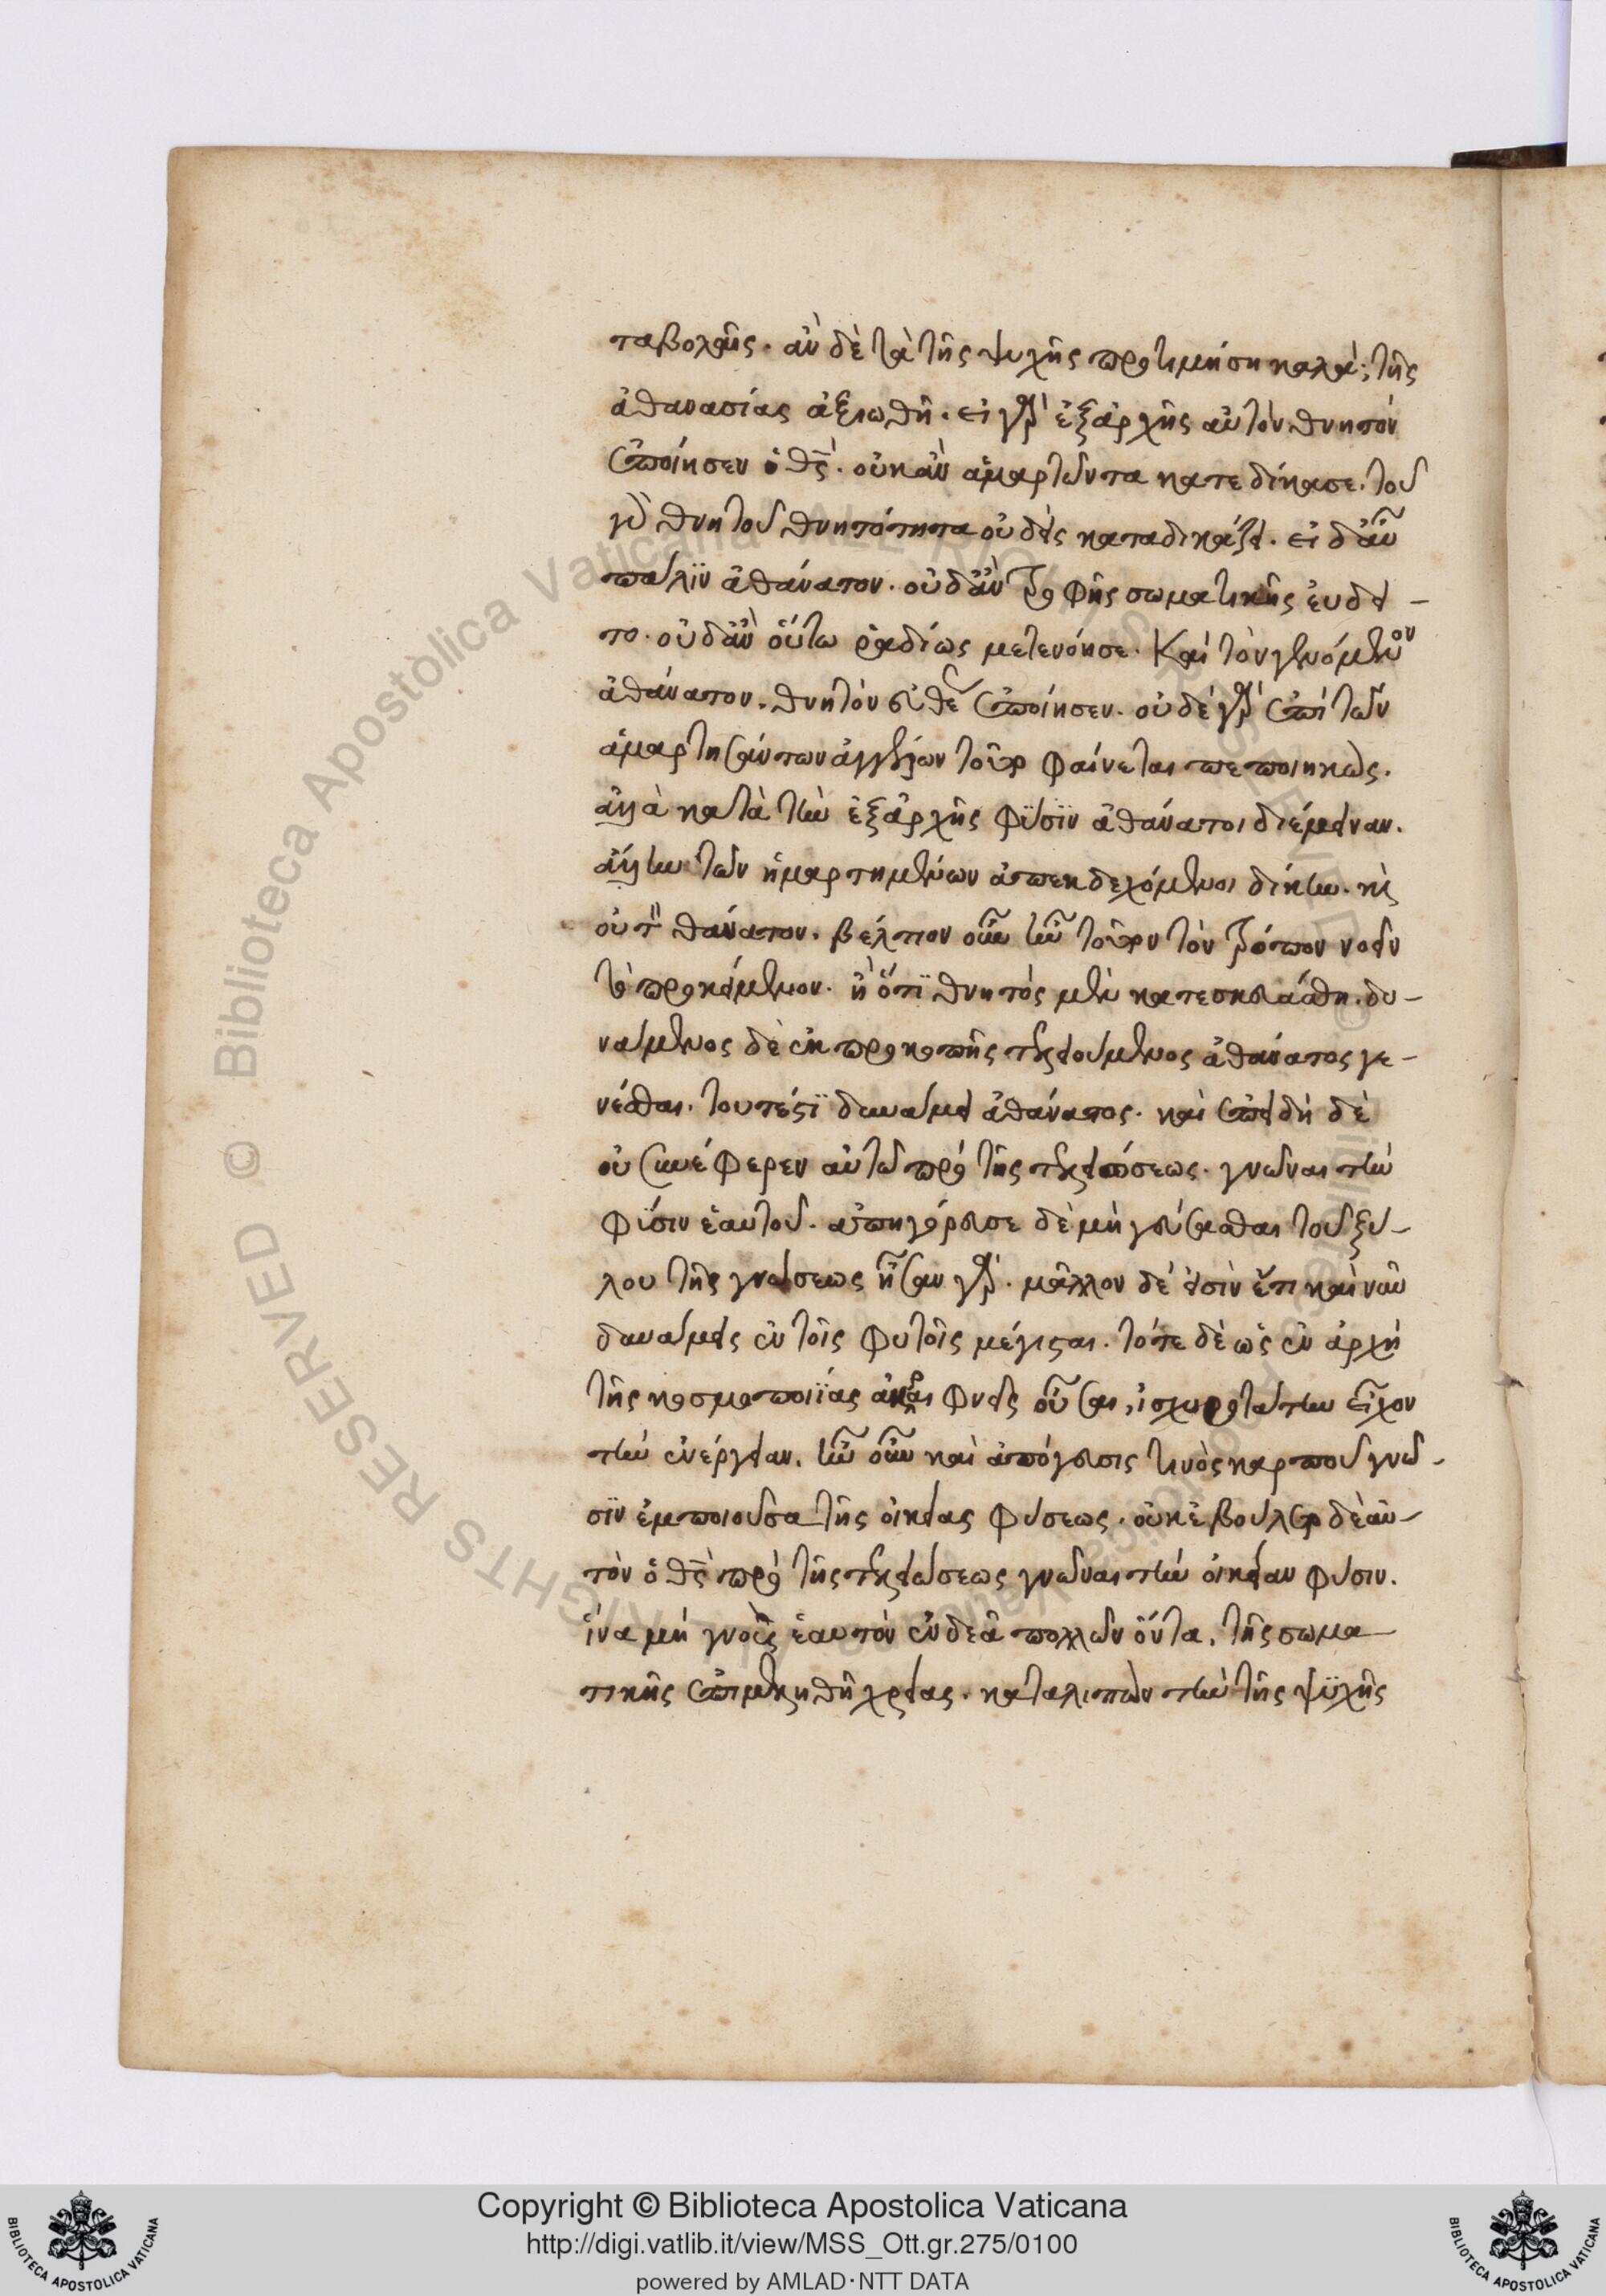 ταβολάς. ἀν δὲ τὰ τῆς ψυχῆς προτιμήση καλά, τῆς
ἀθανασίας ἀξιωθῆ. εἰ γὰρ ἐξἀρχῆς αὐτὸν θνητὸν
ἐποίησεν ὁ θς. οὐκ ἀν ἁμαρτόντα κατεδίκασε. τοῦ
γὰρ θνητοῦ θνητότητα οὐδεὶς καταδικάζει. εἰ δ' αὖ
πάλϊν ἀθάνατον. οὐδ' ἀν τροφῆς σωματικῆς ἐνδεᾶ
το. οὐδ' ἀν οὕτω ῥαδίως μετενόησε. καὶ τὸν γενόμενον
ἀθάνατον, θνητὸν εὐθέως ἐποίησεν. οὐδὲ γὰρ ἐπὶ τῶν
ἁμαρτησάντων ἀγγέλων τοῦτο φαίνεται πεποιηκώς.
ἀλλὰ κατὰ τὴν ἐξἀρχῆς φύσϊν ἀθάνατοι διέμειναν.
ἄλλην τῶν ἡμαρτημένων ἀπεκδεχόμενοι δίκην. καὶ
οὐ τὸν θάνατον. βέλτιον οὖν ἦν τοῦτον τὸν τρόπον νοεῖν
τὸ προκείμενον. ἢ ὅτϊ θνητὸς μὲν κατεσκευάσθη. δυ-
νάμενος δὲ ἐκ προκοπῆς τελειούμενος ἀθάνατος γε-
νέσθαι. τουτέστϊ δυνάμει ἀθάνατος. καὶ ἐπειδὴ δὲ
οὐ συνέφερεν αὐτῶ πρὸ τῆς τελειώσεως. γνῶναι τὴν
φύσιν ἑαυτοῦ. ἀπηγόρευσε δὲ μὴ γεύσασθαι τοῦ ξύ-
λου τῆς γνώσεως ἦσαν γὰρ. μᾶλλον δὲ εἰσὶν ἔτι καὶ νῦν
δυνάμεις ἐν τοῖς φυτοῖς μέγισται. τότε δὲ ὡς ἐν ἀρχῆ
τῆς κοσμοποιΐας ἀκραιφνεῖς οὖσαι, ἰσχυροτάτην εἶχον
τὴν ἐνέργειαν. ἦν οὖν καὶ ἀπόγευσις τινὸς καρποῦ γνῶ-
σϊν ἐμποιοῦσα τῆς οἰκείας φύσεως. οὐκ ἐβούλετο δὲ αὐ-
τὸν ὁ θς πρὸ τῆς τελειώσεως γνῶναι τὴν οἰκείαν φύσιν.
ἵνα μὴ γνοὺς ἑαυτὸν ἐνδεᾶ πολλῶν ὄντα, τῆς σωμα
τικῆς ἐπιμεληθῆ χρείας. καταλιπὼν τὴν τῆς ψϋχῆς
Copyright © Biblioteca Apostolica Vaticana
http://digi.vatlib.it/view/MSS_Ott.gr.275/0100
powered by AMLAD·NTT DATA